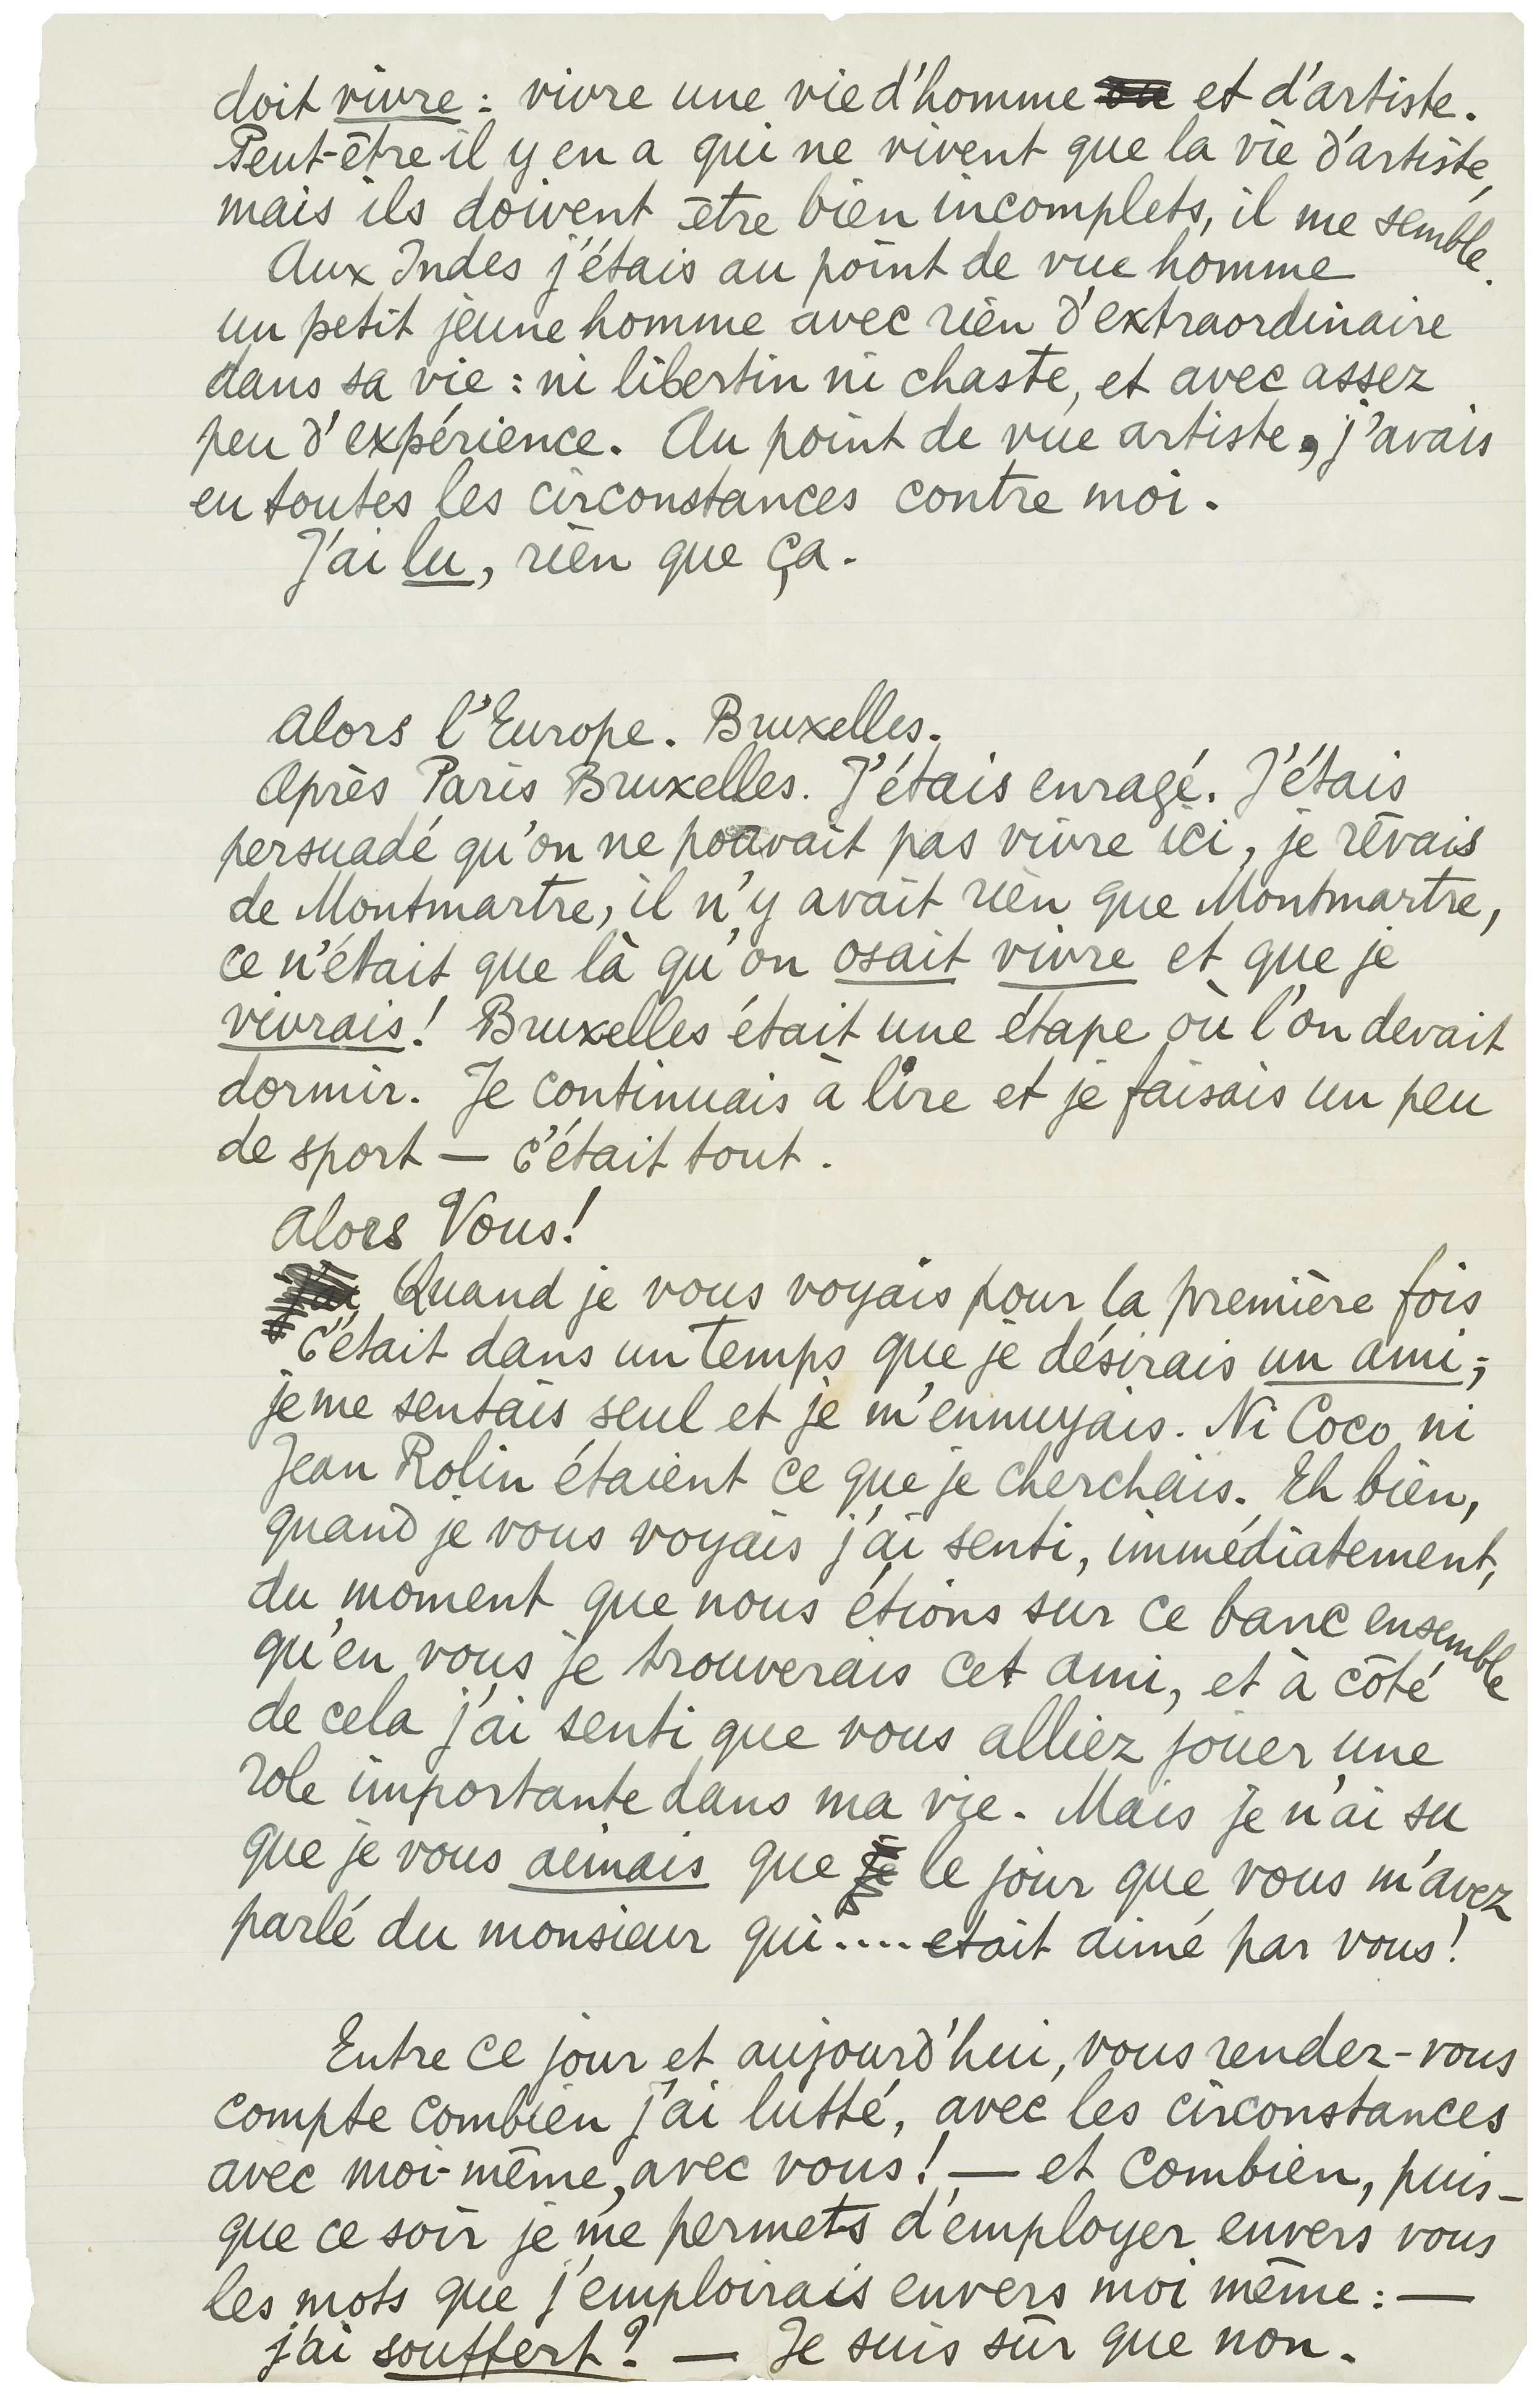 doit vivre : vivre une vie d'homme et d'artiste.
Peut-être il y en a qui ne vivent que la vie d'artiste,
mais ils doivent être bien incomplets, il me semble.
Aux Indes j'étais au point de vue homme
un petit jeune homme avec rien d'extraordinaire
dans sa vie : ni libertin ni chaste, et avec assez
peu d'expérience. Au point de vue artiste, j'avais
eu toutes les circonstances contre moi.
J'ai lu, rien que ça.
Alors l'Europe. Bruxelles.
Après Paris Bruxelles. J'étais enragé. J'étais
persuadé qu'on ne pouvait pas vivre ici, je rêvais
de Montmartre, il n'y avait rien que Montmartre,
ce n'était que là qu'on osait vivre et que je
vivrais! Bruxelles était une étape où l'on devait
dormir. Je continuais à lire et je faisais un peu
de sport — c'était tout.
Alors Vous!
Quand je vous voyais pour la première fois
c'était dans un temps que je désirais un ami;
je me sentais seul et je m'ennuyais. Ni Coco ni
Jean Rolin étaient ce que je cherchais. Eh bien,
quand je vous voyais j'ai senti, immédiatement,
du moment que nous étions sur ce banc ensemble
qu'en vous je trouverais cet ami, et à côté
de cela j'ai senti que vous alliez jouer une
role importante dans ma vie. Mais je n'ai su
que je vous aimais que le jour que vous m'avez
parlé du monsieur qui.... etait aimé par vous!
Entre ce jour et aujourd'hui, vous rendez-vous
compte combien j'ai lutté, avec les circonstances
avec moi-même, avec vous! — et combien, puis-
que ce soir je me permets d'employer envers vous
les mots que j'emploirais envers moi même : —
j'ai souffert? — Je suis sûr que non.